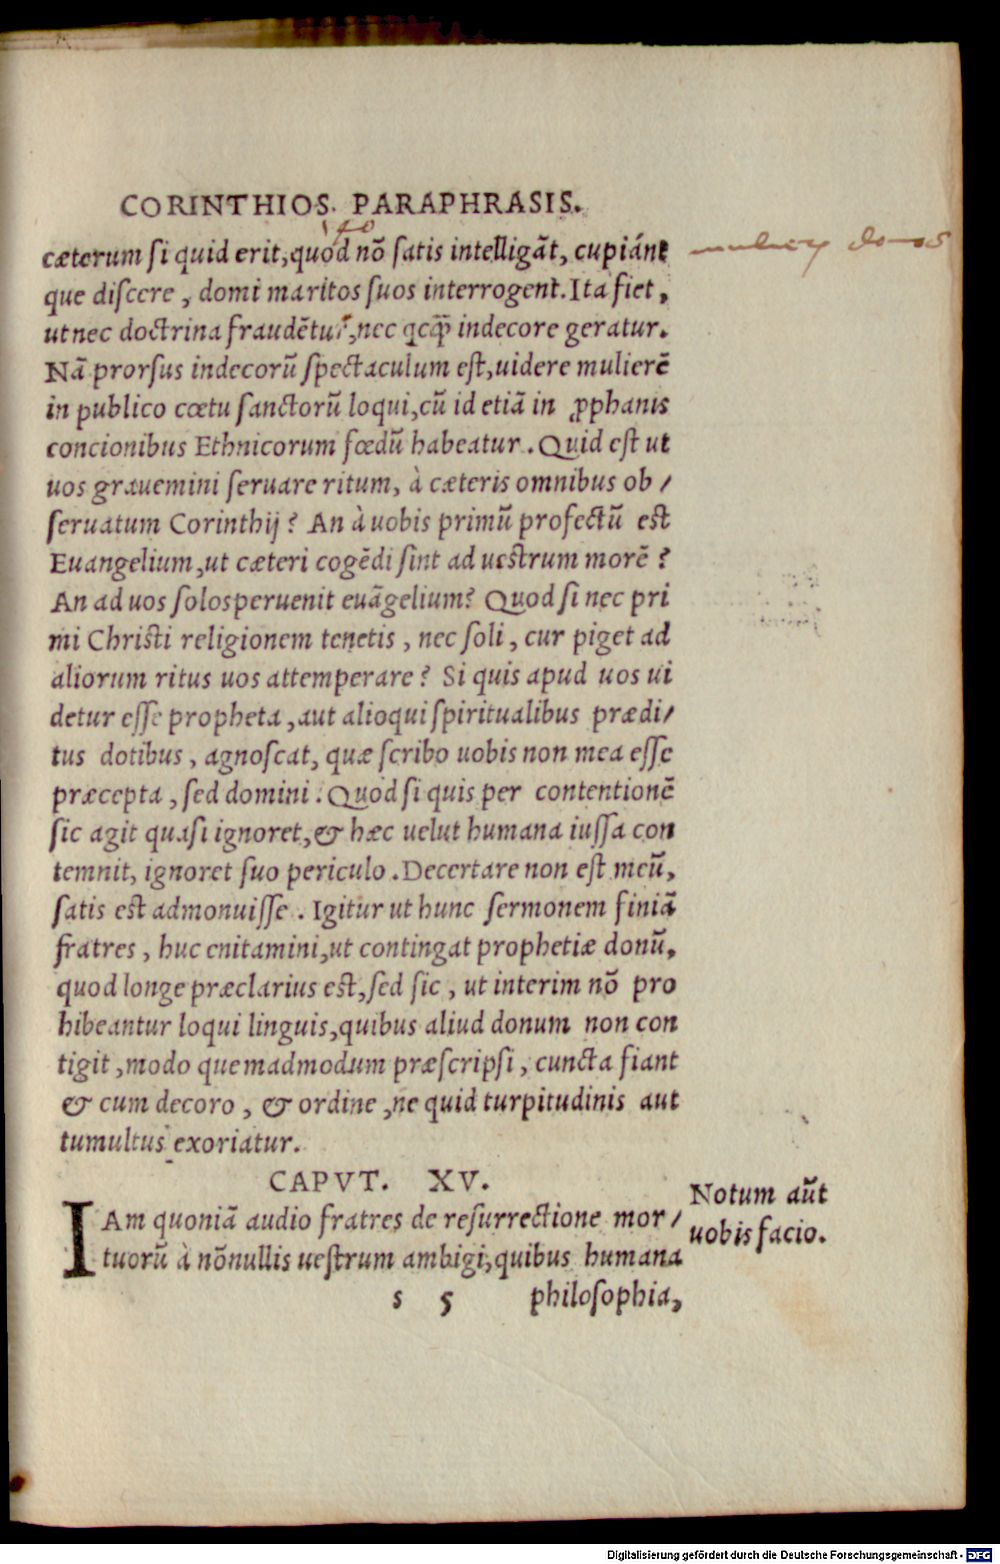 CORINTHIOS. PARAPHRASIS.
cæterum si quid erit, quod nō satis intelligāt, cupiánt
que discere, domi maritos suos interrogent. Ita fiet,
ut nec doctrina fraudētur, nec qcq̄ indecore geratur.
Nā prorsus indecorū spectaculum est, uidere mulierē
in publico cœtu sanctorū loqui, cū id etiā in ꝓphanis
concionibus Ethnicorum fœdū habeatur. Quid est ut
uos grauemini seruare ritum, à cæteris omnibus ob/
seruatum Corinthij? An à uobis primū profectū est
Euangelium, ut cæteri cogēdi sint ad uestrum morē?
An ad uos solos peruenit euāgelium? Quod si nec pri
mi Christi religionem tenetis, nec soli, cur piget ad
aliorum ritus uos attemperare? Si quis apud uos ui
detur esse propheta, aut alioqui spiritualibus prædi/
tus dotibus, agnoscat, quæ scribo uobis non mea esse
præcepta, sed domini. Quod si quis per contentionē
sic agit quasi ignoret, & hæc uelut humana iussa con
temnit, ignoret suo periculo. Decertare non est meū,
satis est admonuisse. Igitur ut hunc sermonem finiā
fratres, huc enitamini, ut contingat prophetiæ donū,
quod longe præclarius est, sed sic, ut interim nō pro
hibeantur loqui linguis, quibus aliud donum non con
tigit, modo quemadmodum præscripsi, cuncta fiant
& cum decoro, & ordine, ne quid turpitudinis aut
tumultus exoriatur.
CAPVT. XV.
IAm quoniā audio fratres de resurrectione mor/
tuorū à nōnullis uestrum ambigi, quibus humana
Notum aūt
uobis facio.
s 5 philosophia,
Digitalisierung gefördert durch die Deutsche Forschungsgemeinschaft - DFG